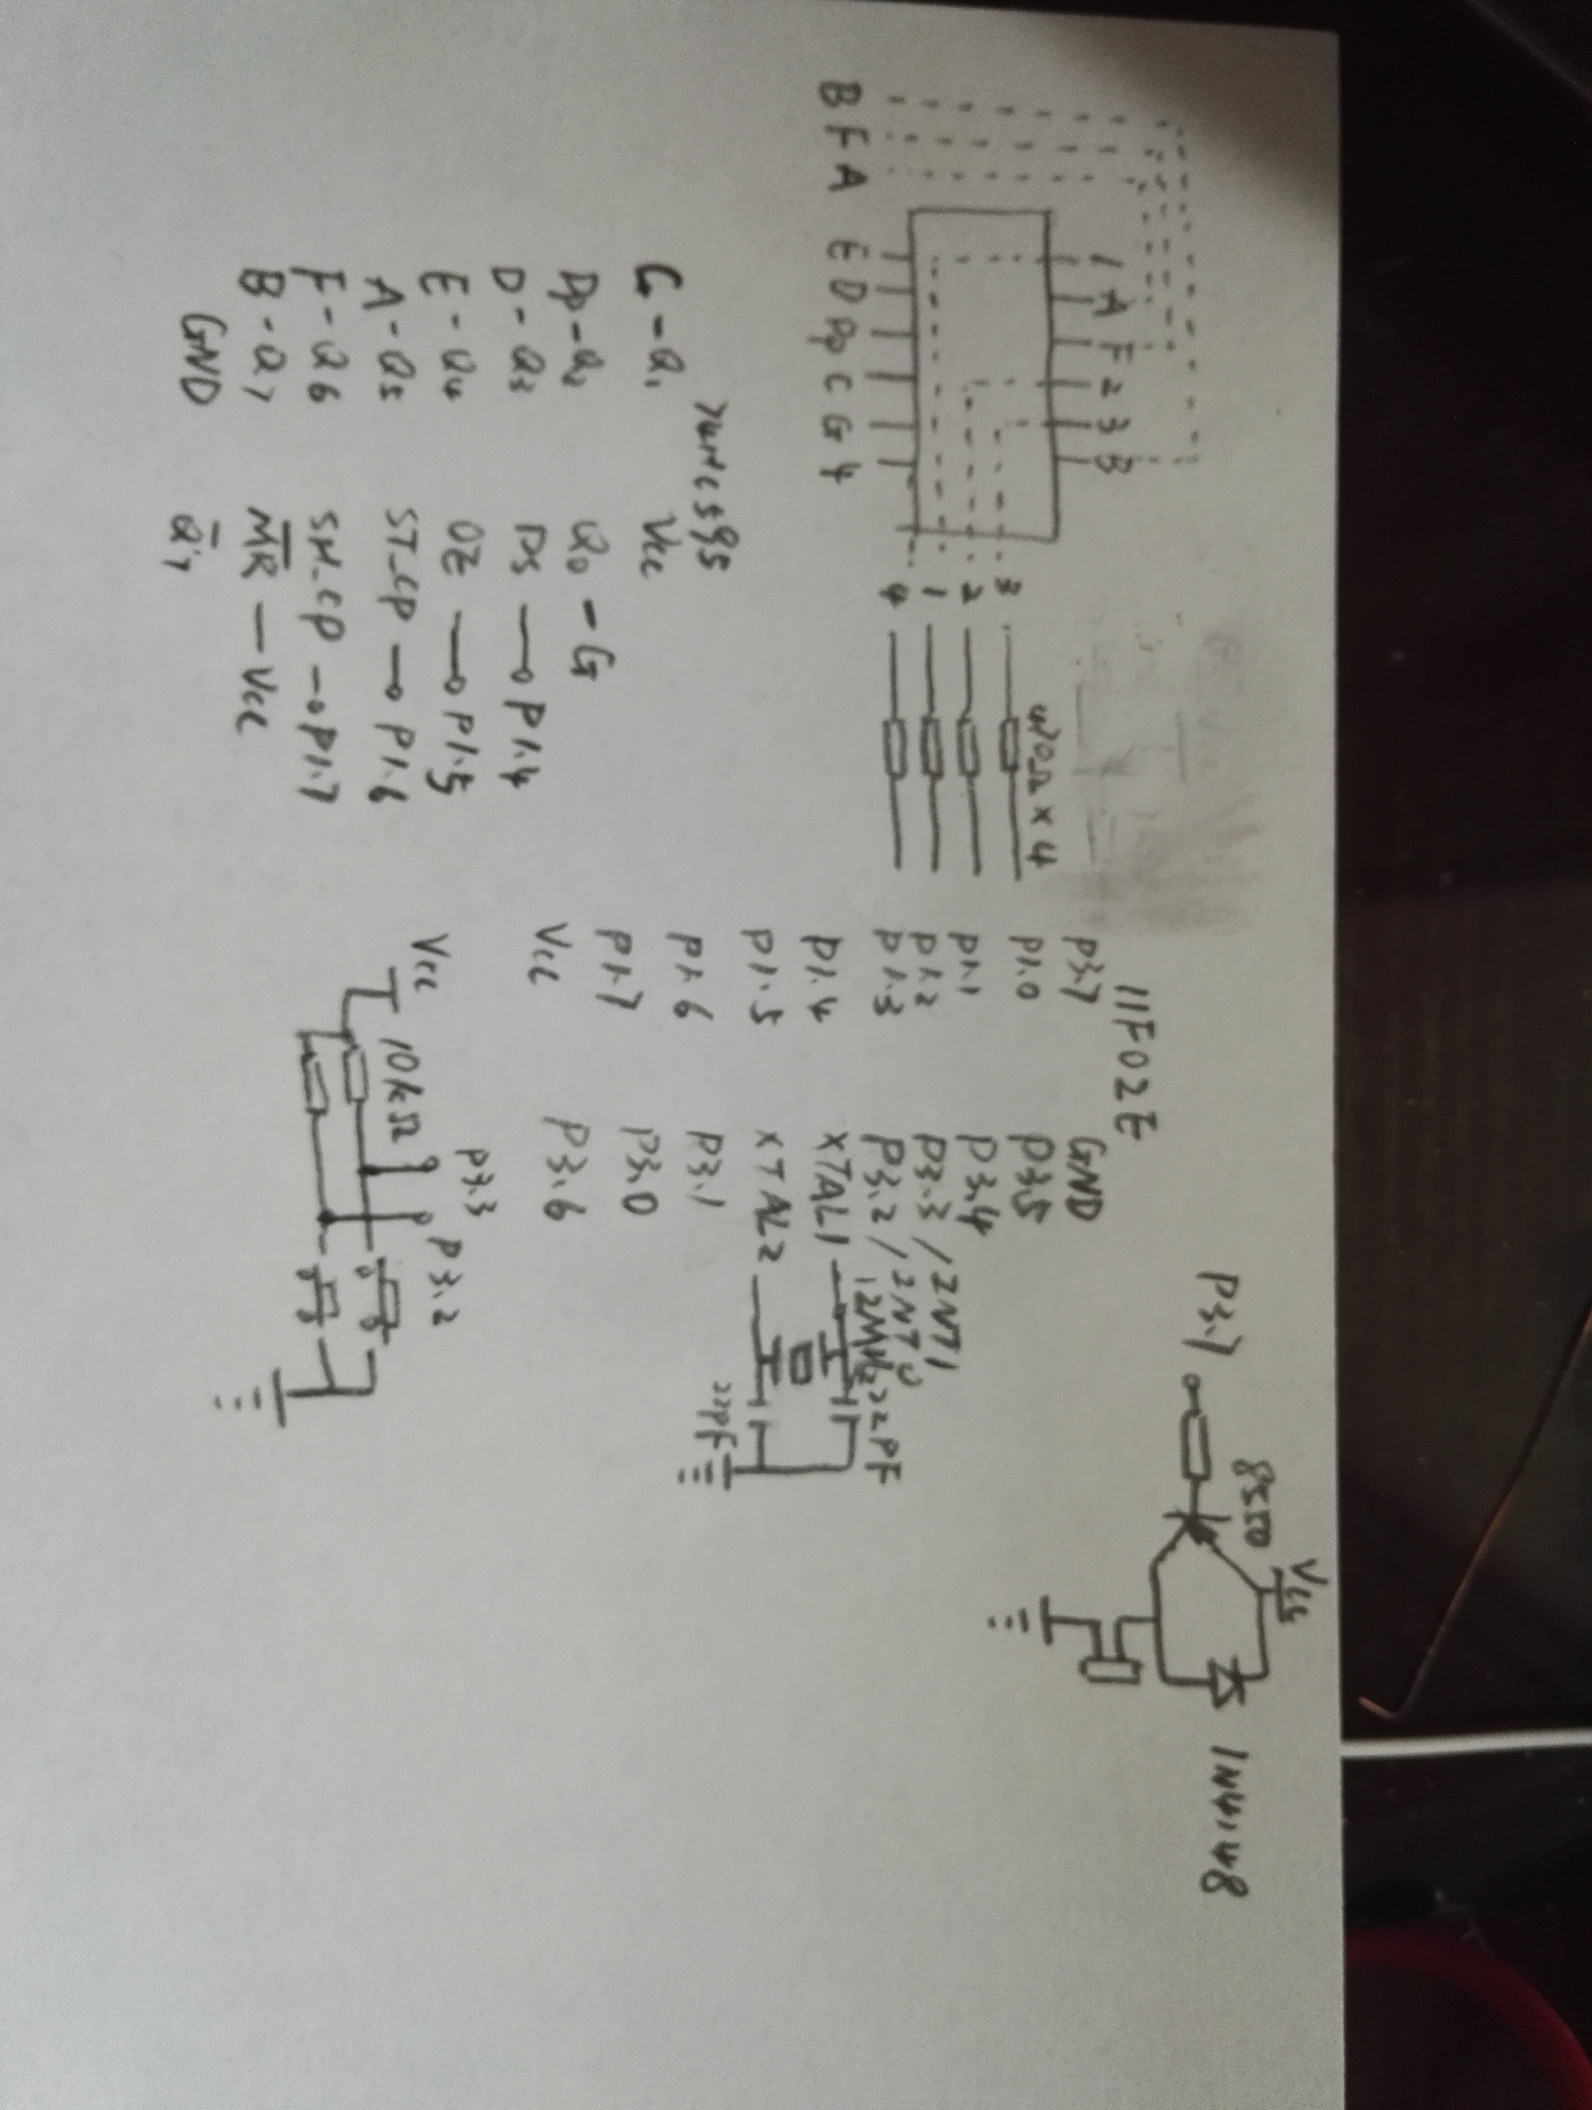 P3.7
8550
Vcc
1N4148
11F02E
P3.7 GND
P1.0 P3.5
P1.1 P3.4
P1.2 P3.3/INT1
P1.3 P3.2/INT0
P1.4 XTAL1
P1.5 XTAL2
P1.6 P3.1
P1.7 P3.0
Vcc P3.6
12MHz
22PF
22PF
Vcc
10kΩ
P3.3
P3.2
1 A F 2 3 B
B F A
E D Dp C G 4
3
2
1
4
470Ω×4
74HC595
Vcc
Q0 - G
DS P1.4
OE P1.5
ST_CP P1.6
SH_CP P1.7
MR - Vcc
Q'7
- Q1
Dp - Q2
D - Q3
E - Q4
A - Q5
F - Q6
B - Q7
GND